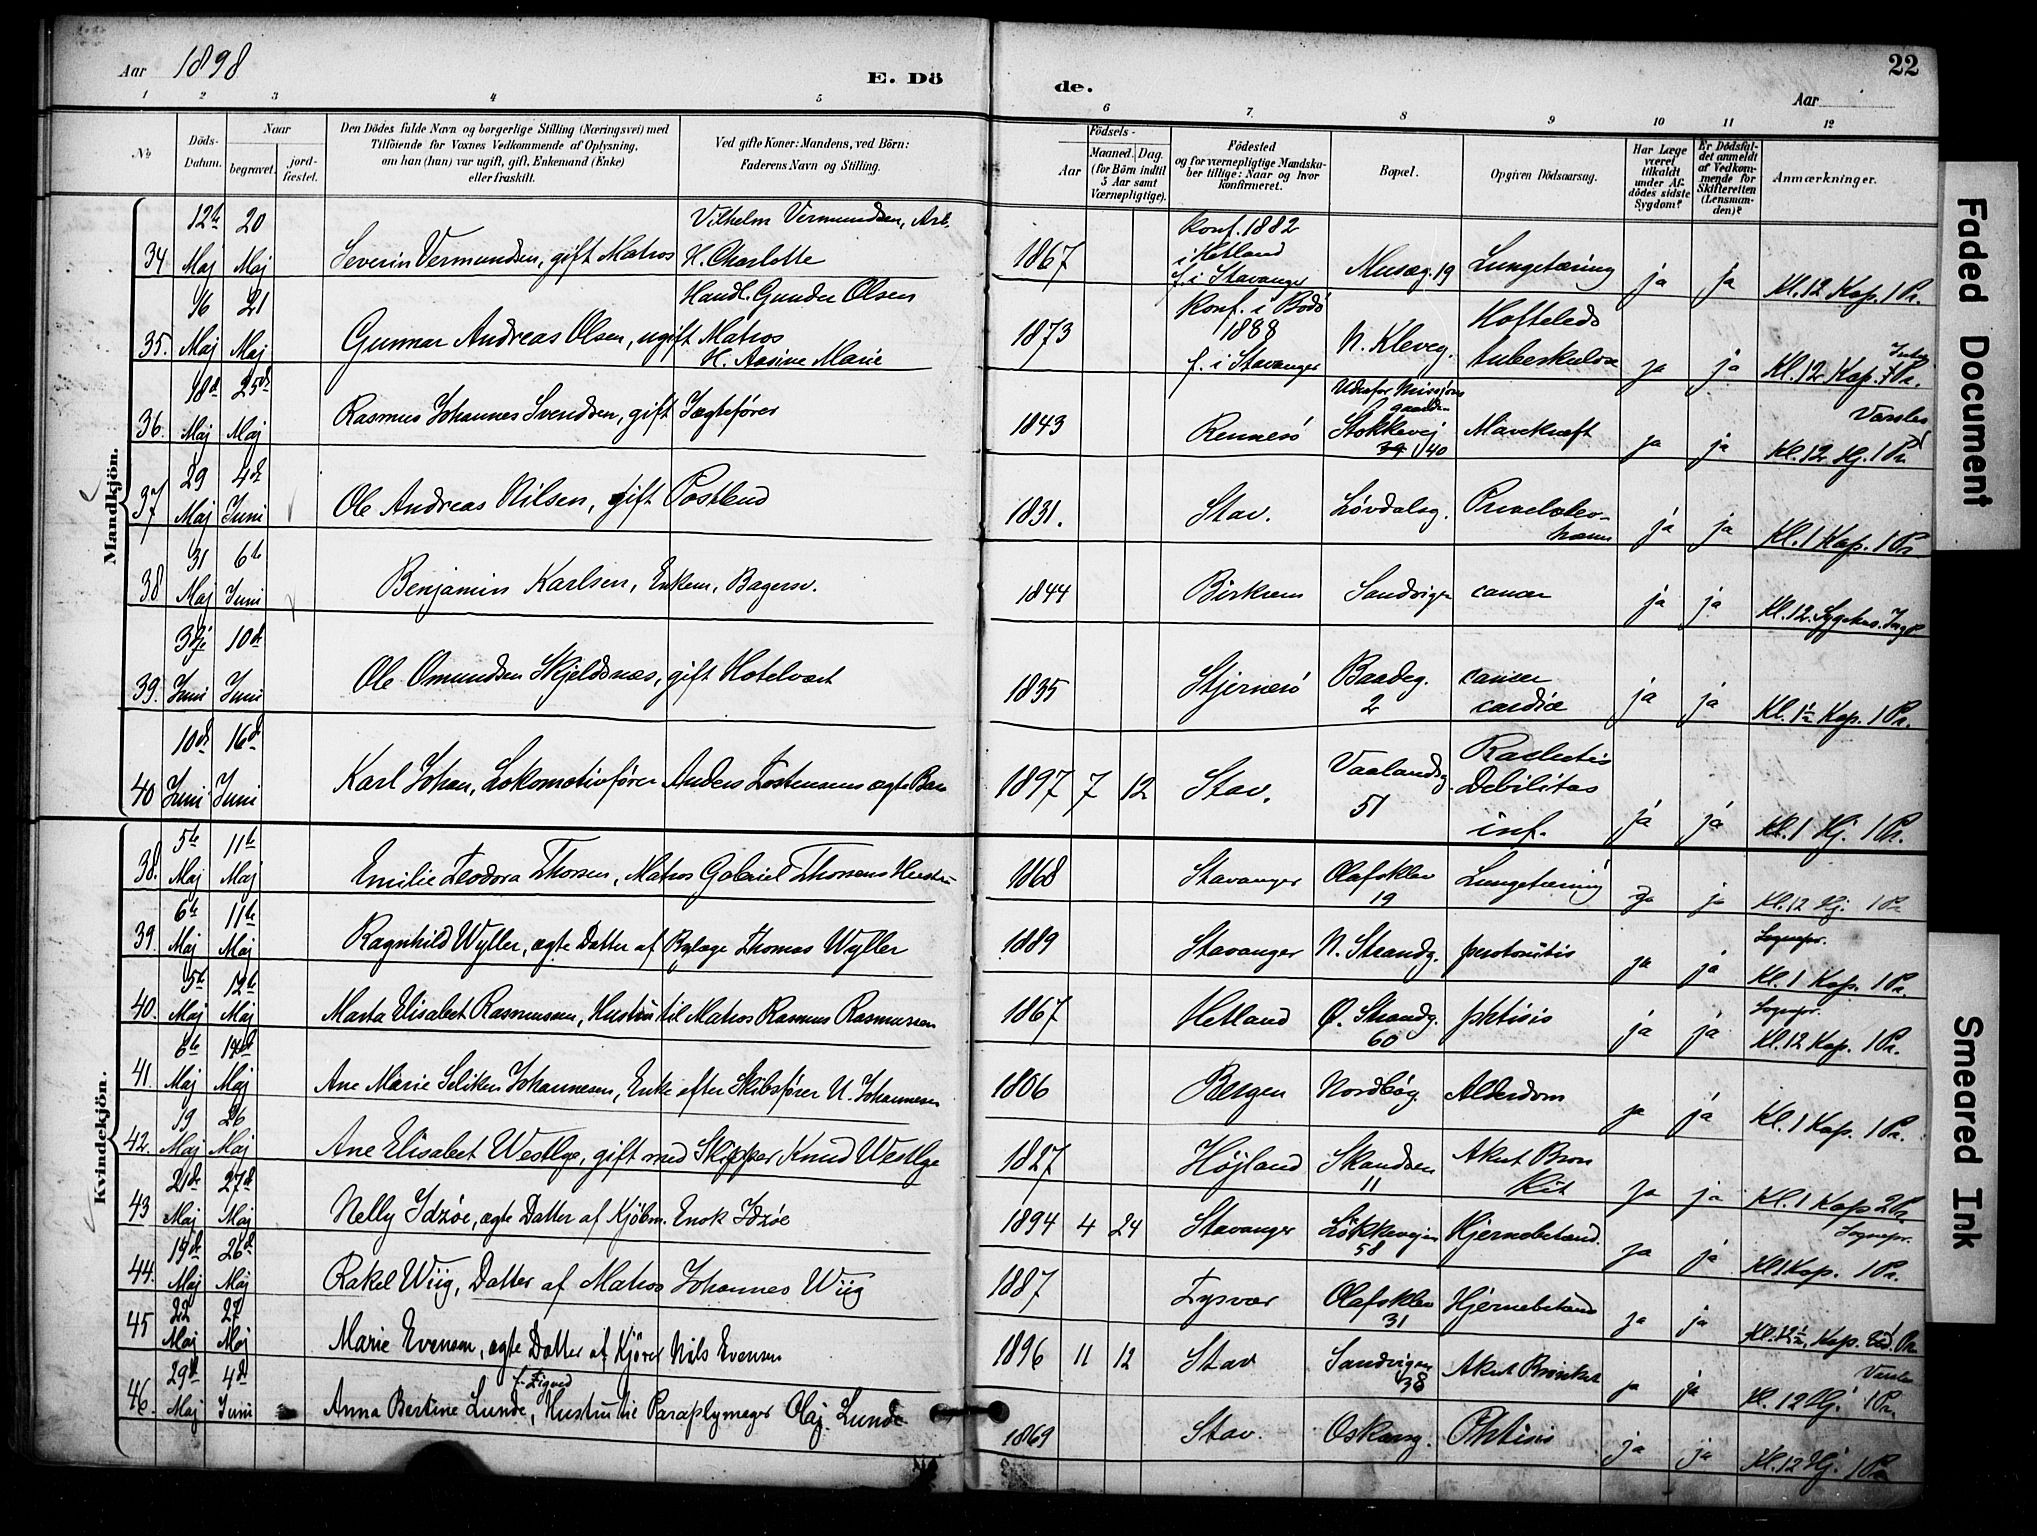 Aar 1898
E. Dö
de.
22
Aar
1 2 3 4 5 6 7. 8 9 10 11 12
No
Döds-Datum.
Naar
begravet.
jordfæstet.
Den Dödes fulde Navn og borgerlige Stilling (Næringsvei) med
Tilföiende for Voxnes Vedkommende af Oplysning,
om han (hun) var ugift, gift, Enkemand (Enke)
eller fraskilt.
Ved gifte Koner: Mandens, ved Börn:
Faderens Navn og Stilling.
Födsels-
Aar
Maaned. Dag.
(for Börn indtil
5 Aar samt
Værnepligtige).
Födested
og for værnepligtige Mandska-
ber tillige: Naar og hvor
konfirmeret.
Bopæl.
Opgiven Dödsaarsag.
Har Læge
været
tilkaldt
under Af-
dödes sidste
Sygdom?
Er Dödsfal-
det anmeldt
af Vedkom-
mende for
Skifteretten
(Lensman-
den)?
Anmærkninger.
Mandkjön.
34 12te Maj 20 Maj Severin Vermundsen, gift Matros Vilhelm Vermundsen, Arb. H. Charlotte 1867 Konf. 1882 i Hetland f. i Stavanger Musæg. 19 Lungetæring ja ja Kl. 12 Kap. 1 Pr.
35. 16 Maj 21 Maj Gunnar Andreas Olsen, ugift Matros Handl. Gunder Olsen H. Aasine Marie 1873 Konf. i Bodö 1888 f. i Stavanger N. Kleveg. Hofteleds tuberkulose ja ja Kl. 12 Kap. 1 Pr.
36. 18de Maj 25de Maj Rasmus Johannes Svendsen, gift Jægtefører 1843 Rennesö Stokkevej 39 40 Mavekræft ja ja Kl. 12 Hj. 1 Pr
37 29 Maj 4de Juni Ole Andreas Nilsen, gift Postbud 1831. Stav. Løvdalsg. ja ja Kl. 1 Kap. 1 Pr
38 31 Maj 6te Juni Benjamin Karlsen, Enkem. Bagersv. 1844 Birkrem Sandvigen cancer ja ja Kl. 12. Sygehus.
39. 3dje Juni 10de Juni Ole Omundsen Skjeldsnæs, gift Hotelvært 1835 Stjernerö Baadeg. 2 cancer cardiæ ja ja Kl. 1½ Kap. 1 Pr.
40 10de Juni 16de Juni Karl Johan, Lokomotivfører Anders Tostensens ægte Barn 1897 7 12 Stav. Vaalandsg. 51 Rachitis Debilitas inf. ja ja Kl. 1 Hj. 1 Pr.
Kvindekjön.
38. 5te Maj 11te Maj Emilie Teodora Thorsen, Matros Gabriel Thorsens Hustru 1868 Stavanger Olafsklev 19 Lungetæring ja ja Kl. 12 Hj. 1 Pr
39. 6te Maj 11te Maj Ragnhild Wyller, ægte Datter af Bylæge Thomas Wyller 1889 Stavanger N. Strandg. peritonitis ja ja Sognepr. Kl. 1 Kap. 1 Pr.
40. 5te Maj 12te Maj Marta Elisabet Rasmussen, Hustru til Matros Rasmus Rasmussen 1867 Hetland Ø. Strandg. 60 phtisis ja ja Sognepr. Kl. 12 Kap. 1 Pr.
41. 6te Maj Maj Ane Marie Seliken Johannesen, Enke efter Skibsfører N. Johannesen 1806 Bergen Nordbög. Alderdom ja ja Kl. 1 Kap. 1 Pr.
42. 19 Maj 26 Maj Ane Elisabet Westlye, gift med Skipper Knud Westlye 1827 Højland Skandsen 11 Akut Bronkit ja ja Kl. 1 Kap 2 Pr.
43 21de Maj 27de Maj Nelly Idzöe, ægte Datter af Kjöbm. Enok Idzöe 1894 4 24 Stavanger Lökkevejen 58 Hjernebetænd. ja ja Sognepr. Kl 1 Kap. 1 Pr.
44. 19de Maj 26de Maj Rakel Wiig, Datter af Matros Johannes Wiig 1887 Tysvær Olafsklev 31 Hjernebetænd ja ja Kl. 12½ Kap.
45 22 Maj 27 Maj Marie Evensen, ægte Datter af Kjörer Nils Evensen 1896 11 12 Stav Sandvigen 38 Akut Bronkit ja ja Kl. 12 Hj. 1 Pr.
46. 29de Maj 4de Juni Anna Bertine Lunde, f. Sigved Hustru til Paraplymager Olaj Lunde 1869 Stav. Oskarsg. Phtisis ja ja Kl. 12 Hj. 1 Pr
Faded Document
Smeared Ink